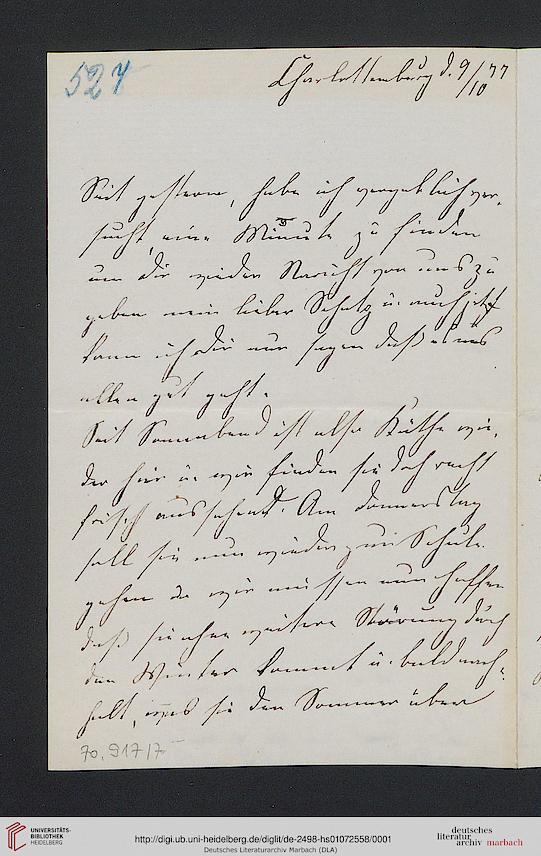 527
Charlottenburg d. 9/10 77
Seit gestern, habe ich vergeblich ver-
sucht, eine Minute zu finden
um dir wieder Nachricht von uns zu
geben mein lieber Schatz u. auch jetzt
kann ich dir nur sagen daß es uns
allen gut geht.
Seit Sonnabend ist also Käthe wie-
der hier u. wir finden sie doch recht
frisch aussehend. Am Donnerstag
soll sie nun wieder zur Schule
gehen u. wir müssen nun hoffen
daß sie ohne weitere Störung durch
den Winter kommt u. bald nach-
holt, was sie den Sommer über
70.917/7
UNIVERSITÄTS-
BIBLIOTHEK
HEIDELBERG
http://digi.ub.uni-heidelberg.de/diglit/de-2498-hs01072558/0001
Deutsches Literaturarchiv Marbach (DLA)
deutsches
literatur
archiv marbach